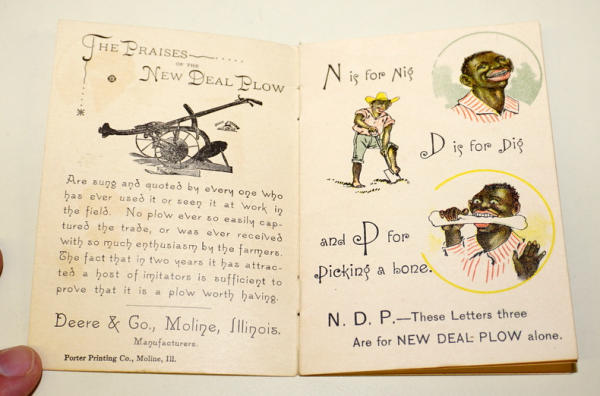 The Praises
of the
New Deal Plow
Are sung and quoted by every one who
has ever used it or seen it at work in
the field. No plow ever so easily cap-
tured the trade, or was ever received
with so much enthusiasm by the farmers.
The fact that in two years it has attrac-
ted a host of imitators is sufficient to
prove that it is a plow worth having.
Deere & Co., Moline, Illinois.
Manufacturers.
Porter Printing Co., Moline, Ill.
N is for Nig
D is for Dig
and P for
picking a bone.
N. D. P.—These Letters three
Are for NEW DEAL PLOW alone.